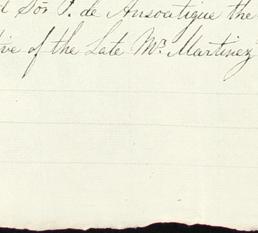 Sor P. de Ansoatigue the
tive of the Late Mr. Martinez